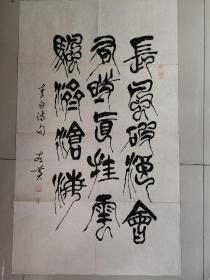 長風破浪會
有時直挂雲
帆濟滄海
李白詩句